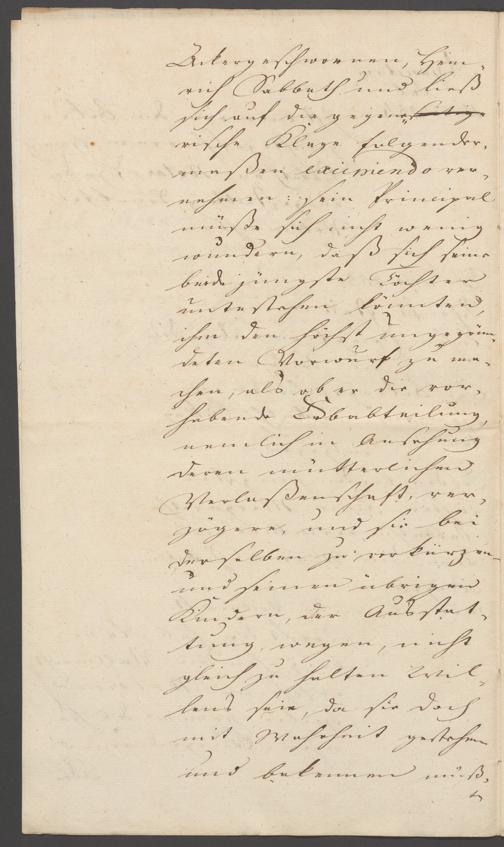 Ackergeschwornen, Hein-
rich Sabbath und ließ
sich auf die gegen
rische Klage folgender-
maßen excipiendo ver-
nehmen: sein Principal
müße sich nicht wenig
wundern, daß sich seine
beide jüngste Töchter
unterstehen könnten,
ihm den höchst ungegrün-
deten Vorwurf zu ma-
chen, als ob er die vor-
habende Erbabteilung,
nemlich in Ansehung
deren mütterlichen
Verlaßenschaft, ver-
zögere, und sie bei
derselben zu verkürzen
und seinen übrigen
Kindern, der Ausstat-
tung wegen, nicht
gleich zu halten Wil-
lens seie, da sie doch
mit Wahrheit gestehen
und bekennen müß-